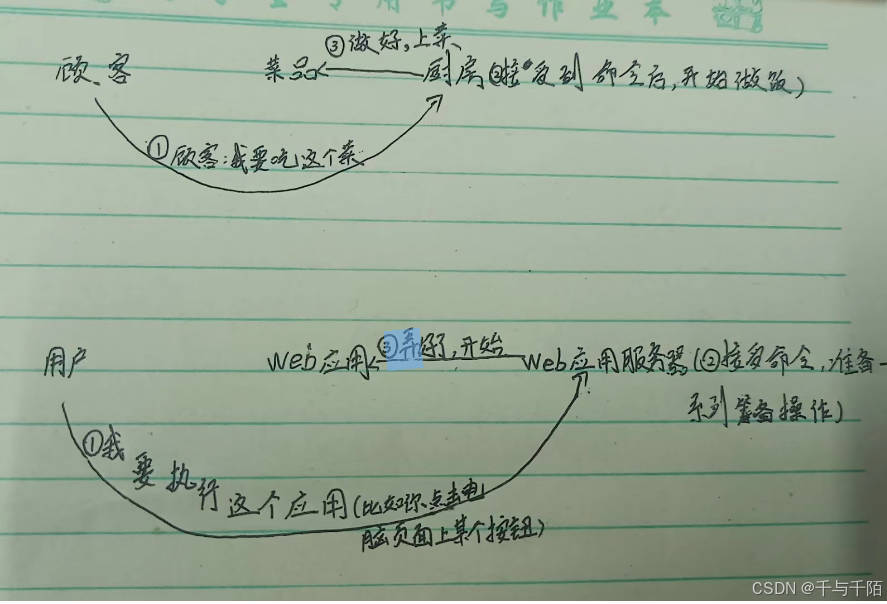 专用书写作业本
③做好,上菜
顾客 菜品 厨房(②接受到命令后,开始做饭)
①顾客:我要吃这个菜
用户 Web应用 ③弄好了,开始 Web应用服务器(②接受命令,准备一
系列筹备操作)
①我要执行这个应用(比如你点击电
脑页面上某个按钮)
CSDN @千与千陌